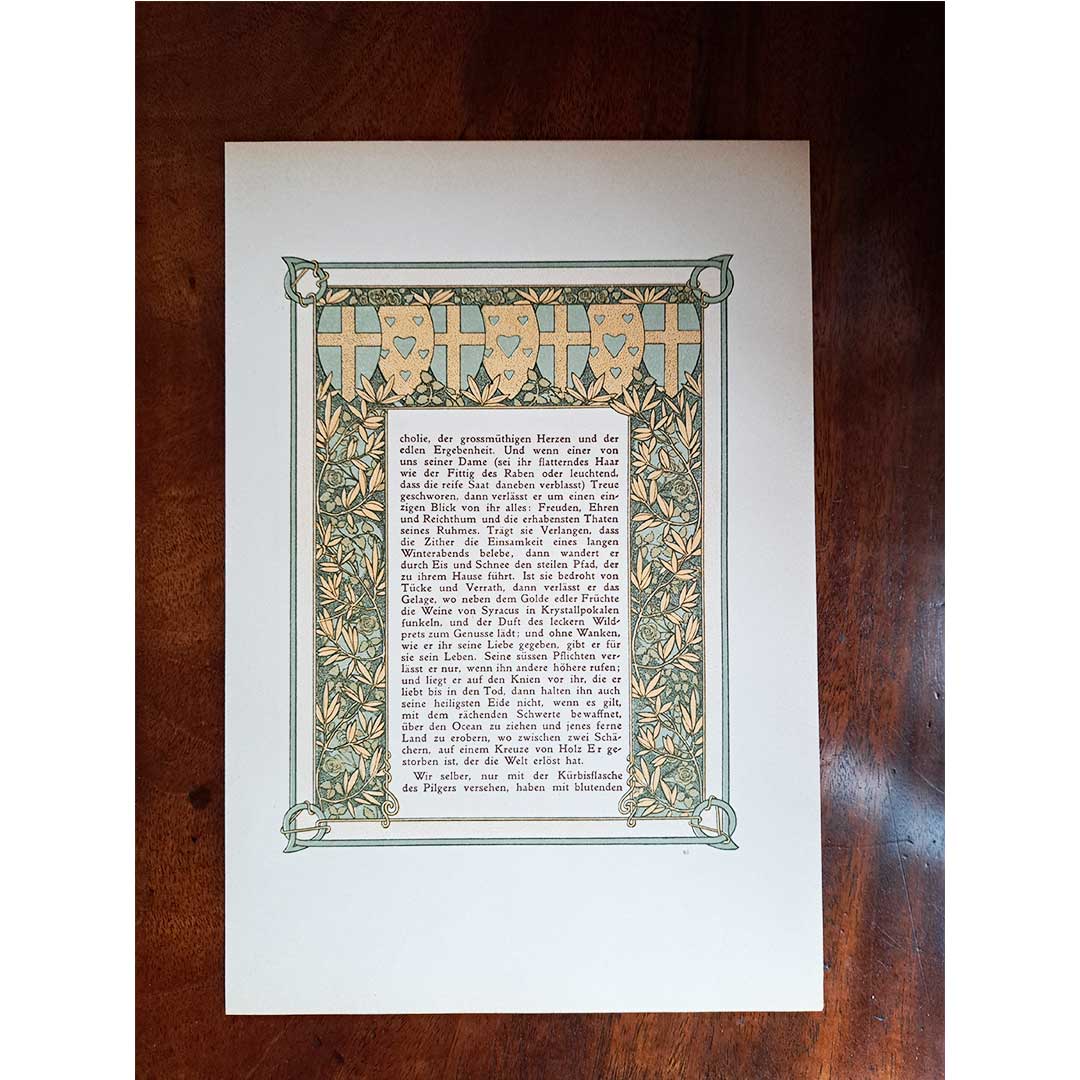 cholie, der grossmüthigen Herzen und der
edlen Ergebenheit. Und wenn einer von
uns seiner Dame (sei ihr flatterndes Haar
wie der Fittig des Raben oder leuchtend,
dass die reife Saat daneben verblasst) Treue
geschworen, dann verlässt er um einen ein-
zigen Blick von ihr alles: Freuden, Ehren
und Reichthum und die erhabensten Thaten
seines Ruhmes. Trägt sie Verlangen, dass
die Zither die Einsamkeit eines langen
Winterabends belebe, dann wandert er
durch Eis und Schnee den steilen Pfad, der
zu ihrem Hause führt. Ist sie bedroht von
Tücke und Verrath, dann verlässt er das
Gelage, wo neben dem Golde edler Früchte
die Weine von Syracus in Krystallpokalen
funkeln, und der Duft des leckern Wild-
prets zum Genusse lädt; und ohne Wanken,
wie er ihr seine Liebe gegeben, gibt er für
sie sein Leben. Seine süssen Pflichten ver-
lässt er nur, wenn ihn andere höhere rufen;
und liegt er auf den Knien vor ihr, die er
liebt bis in den Tod, dann halten ihn auch
seine heiligsten Eide nicht, wenn es gilt,
mit dem rächenden Schwerte bewaffnet,
über den Ocean zu ziehen und jenes ferne
Land zu erobern, wo zwischen zwei Schä-
chern, auf einem Kreuze von Holz Er ge-
storben ist, der die Welt erlöst hat.
Wir selber, nur mit der Kürbisflasche
des Pilgers versehen, haben mit blutenden